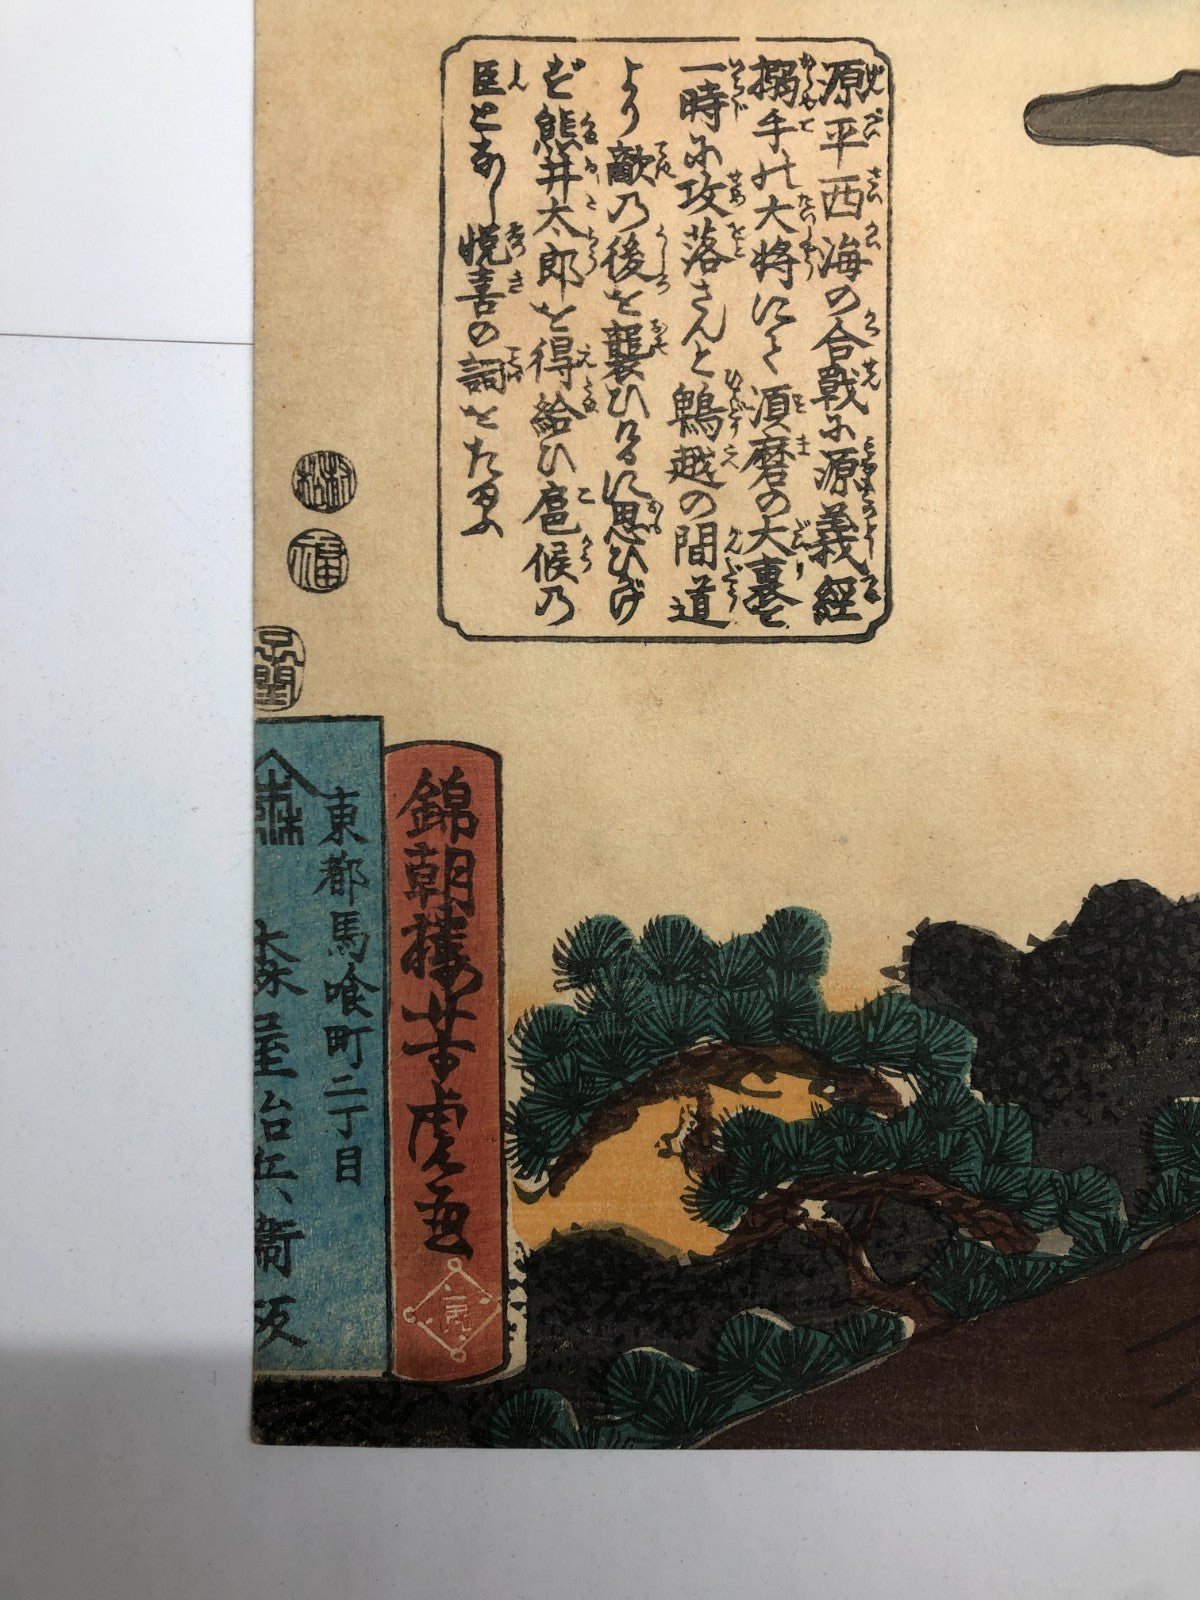 源平西海の合戦に源義経
搦手の大将にて須磨の大裏を
一時に攻落さんと鵯越の間道
より敵乃後を襲ひけるに思ひがけ
ず熊井太郎を得給ひ扈候乃
臣となし悦喜の詞をたまふ
福
東都馬喰町二丁目
森屋治兵衛板
錦朝楼芳虎画